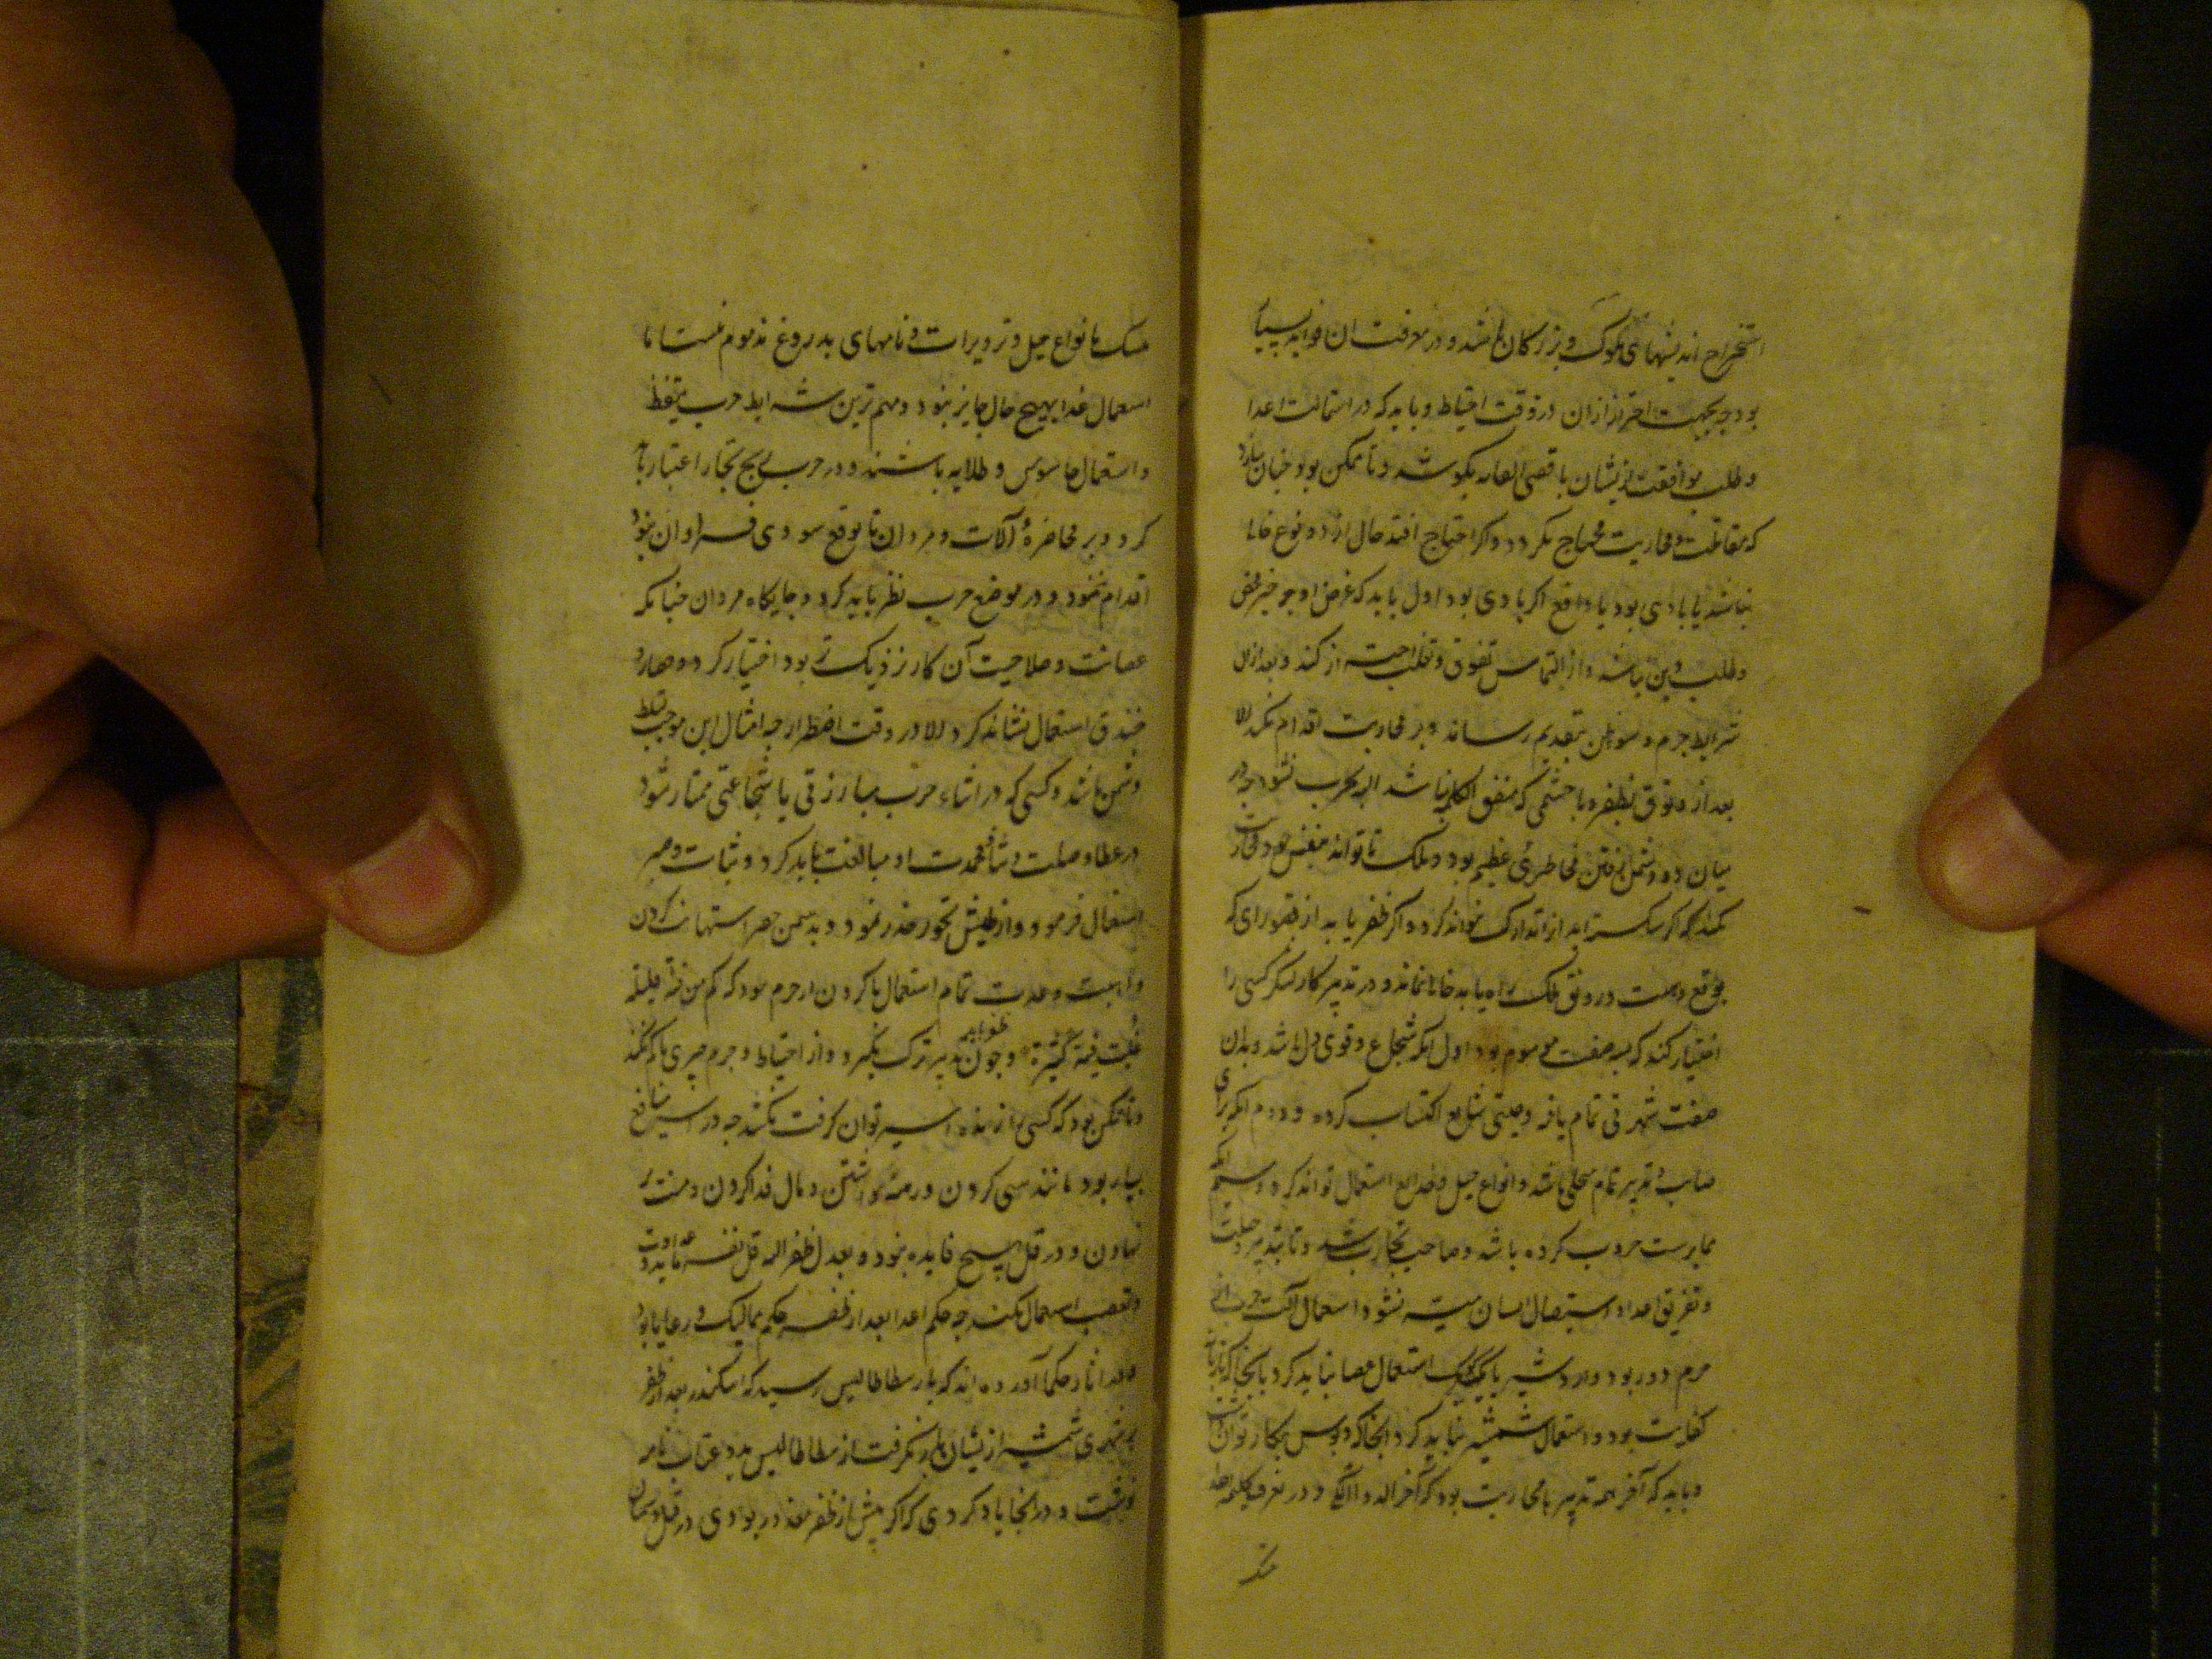 استخراج اندیشهای ملوک و بزرگان باشد و در معرفت ان فواید بسیار
بود چه بجهت احتراز ازان در وقت احتیاط و باید که در استمالت اعدا
و طلب موافقت ایشان باقصی الغایه بکوشد و تا ممکن بود چنان سازد
که بمقاتلت و محاربت محتاج نگردد و اگر احتیاج افتد حال از دو نوع خالی
نباشد یا بادی بود یا دافع اگر بادی بود اول باید که غرض او جز خیر محض
و طلب دین نباشد و از التماس تفوق و تغلب احتراز کند و بعد ازان
شرایط حزم و سوء ظن بتقدیم رساند و بر محاربت اقدام نکند الا
بعد از وثوق بظفر و با حشمی که متفق الکلمه نباشد البته بحرب نشود چه در
میان دو دشمن رفتن مخاطره عظیم بود و ملک تا تواند بنفس خود محاربت
نکند که اگر شکسته اید انرا تدارک نتواند کرد و اگر ظفر یابد از قصوری که
بوقع و هیبت و رونق ملک راه یابد خالی نماند و در تدبیر کار لشکر کسی را
اختیار کند که بسه صفت موسوم بود اول انکه شجاع و قوی دل باشد و بدان
صفت شهرتی تمام یافته و صیتی شایع اکتساب کرده و دوم انکه برای
صایب و تدبیر تمام متحلی باشد و انواع حیل و خدایع استعمال تواند کرد و سیم انکه
ممارست حروب کرده باشد و صاحب تجارب شده و تا بتدبیر و حیلت
و تفریق اعدا و استیصال ایشان میسر نشود استعمال آلت حرب از
حزم دور بود و اردشیر بابک گوید استعمال عصا نباید کرد بانجا که تازیانه
کفایت بود و استعمال شمشیر نباید کرد انجا که دبوس بکار توان داشت
و باید که آخر همه تدبیر با محاربت بود که آخر الدواء الکی و در تفرق کلمه اعدا
تمسک بانواع حیل و تزویرات و نامهای بدروغ مذموم نیست اما
استعمال غدر بهیچ حال جایز نبود و مهم ترین شرایط حرب تیقظ
و استعمال جاسوس و طلایه باشد و در حرب ربح تجار اعتبار باید
کرد و بر مخاطره آلات و مردان تا توقع سودی فراوان نبود
اقدام ننمود و در موضع حرب نظر باید کرد و جایگاه مردان چنانکه
حصانت و صلاحیت آن کار نزدیک تر بود اختیار کرد و حصار و
خندق استعمال نشاید کرد الا در وقت اضطرار چه امثال این موجب تسلط
دشمن باشد و کسی که در اثناء حرب بمبارزتی یا شجاعتی ممتاز شود
در عطا و صلت و ثنا و محمدت او مبالغت باید کرد و ثبات و صبر
استعمال فرمود و از طیش و تهور حذر نمود و بدشمن حقیر استهانت کردن
و اهبت و عدت تمام استعمال ناکردن از حزم نبود که کم من فئة قلیلة
غلبت فئة کثیرة و چون ظفر یابد تدبیر ترک نگیرد و از احتیاط و حزم چیزی با کم نکند
و تا ممکن بود که کسی را زنده اسیر توان گرفت نکشد چه در اسر منافع
بسیار بود مانند سبی کردن و رهینه داشتن و مال فدا کردن و منت
نهادن و در قتل هیچ فایده نبود و بعد از ظفر البته قتل نفرماید و عداوت
و تعصب استعمال نکند چه حکم اعدا بعد از ظفر حکم ممالیک و رعایا بود
و در اثار حکما آورده اند که بارسطاطالیس رسید که اسکندر بعد از ظفر
بر شهری شمشیر از ایشان باز نگرفت ارسطاطالیس بدو عتاب نامه
نوشت و در انجا یاد کرد که اگر پیش از ظفر معذور بودی در قتل دشمنان